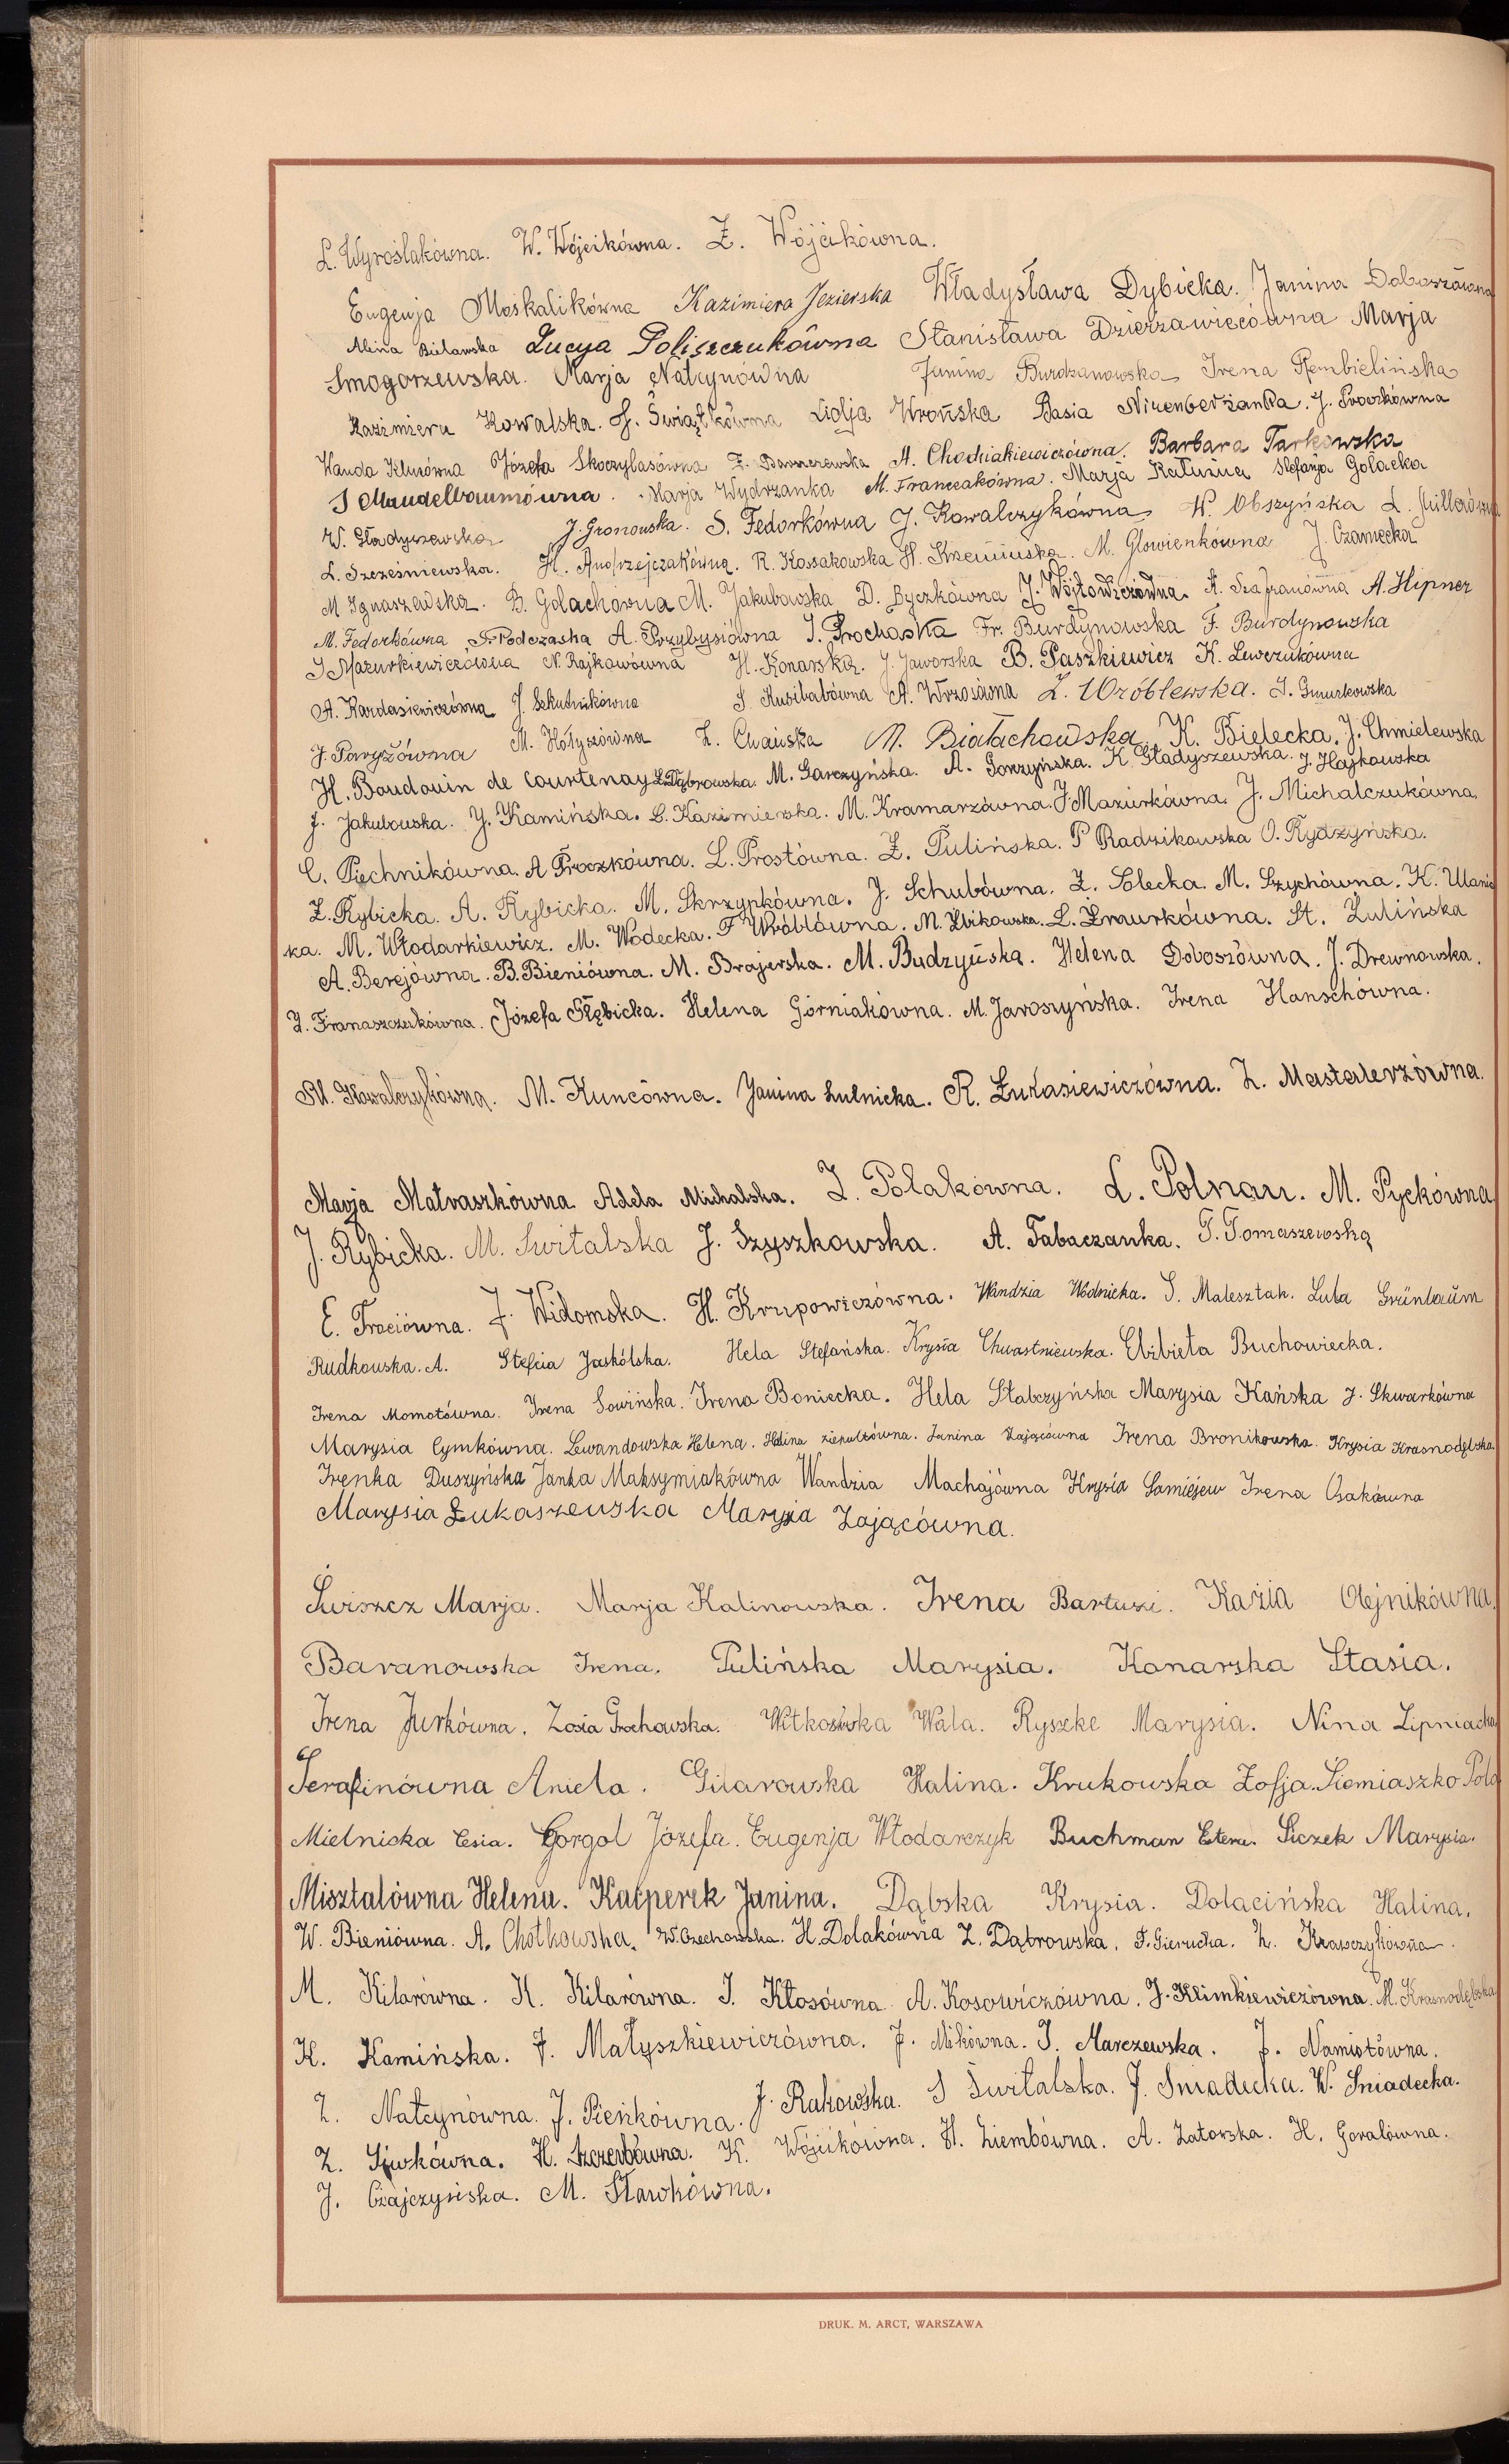 L. Wyroślakówna. W. Wójcikówna. Z. Wójcikówna.
Eugenja Moskalikówna Kazimiera Jezierska Władysława Dybicka. Janina Doboszówna
Alina Bielawska Lucya Poliszczukówna Stanisława Dzierżawiecówna Marja
Smogorzewska. Marja Nałcynówna Janina Burdzanowska Irena Rembielińska
Kazimiera Kowalska. Świątkówna Lidja Wrońska Basia Nirenberżanka. J. Proczkówna
Wanda Józefa Skoczylasówna A. Chodniakiewiczówna. Barbara Tarkowska
J Mandelbaumówna. Marja Wydrzanka M. Franczakówna. Marja Kałuża Stefanja Golacka
W. Gładyszewska J. Gronowska. S. Fedorkówna J. Kowalczykówna W. Obszyńska L. Millerówna
L. Szcześniewska. H. Andrzejczakówna. R. Kossakowska H. Krzemińska. M. Glowienkówna J. Czarnecka
M Ignaszewska. B. Golachowna M. Jakubowska D. Byczkówna J. Wójtowiczówna. A. Szafranówna A. Hipner
M. Fedorkówna Podczaska A. Przybysiówna J. Prochaska Fr. Burdynowska F. Burdynowska
J Mazurkiewiczówna N. Rajkowówna H. Konarska. J. Jaworska B. Paszkiewicz K. Lewczukówna
A. Kardasiewiczówna J. Szkutnikówna S. Kusibabówna A. Wrzosówna Z. Wróblewska. J. Gmurkowska
J. Paryżówna M. Hołyszówna Z. M. Białachowska K. Bielecka. J. Chmielewska
H. Baudouin de Courtenay L. Dąbrowska. M. Garczyńska. A. Gorzyńska. K. Gładyszewska. J. Hajkowska
J. Jakubowska. J. Kamińska. L. Kazimierska. M. Kramarzówna. J Mazurkówna. J. Michalczukówna,
C. Piechnikówna. A Proczkówna. L. Prostówna. Z. Pulińska. P Radzikowska O. Rydzyńska.
Z. Rybicka. A. Rybicka. M. Skrzypkówna. J. Schubówna. Z. Solecka. M. Szychówna. K. Ulanic
ka. M. Włodarkiewicz. M. Wodecka. F Wróblówna. M. Żbikowska. L. Żmurkówna. St. Żulińska
A. Berejówna. B. Bieniówna. M. Brajerska. M. Budzyńska. Helena Doboszówna. J. Drewnowska.
Z. Franaszczukówna. Józefa Głębicka. Helena Górniakówna. M. Jaroszyńska. Irena Hanschówna.
M. Kowalczykówna. M. Kuncówna. Janina Lulnicka. R. Łukasiewiczówna. Z. Mastalerzówna.
Marja Matraszkówna Adela Michalska. Z. Polakówna. L. Polnau. M. Pyckówna
J. Rybicka. M. Świtalska J. Szyszkowska. A. Tabaczanka. T. Tomaszewska
E. Trociówna. J. Widomska. H. Krupowiczówna. Wandzia Wodnicka. S. Malesztak. Luta Grünbaum
Rudkowska. A. Stefcia Jaskólska. Hela Stefańska. Krysia Chwastniewska. Elżbieta Buchowiecka.
Irena Momotówna. Irena Sowińska. Irena Boniecka. Hela Słabczyńska Marysia Kańska J. Skwarkówna
Marysia Cymkówna. Lewandowska Helena. Halina Janina Zającówna Irena Bronikowska. Krysia Krasnodębska
Irenka Duszyńska Janka Maksymiakówna Wandzia Machajówna Krysia Samiéjew Irena Osakówna
Marysia Łukaszewska Marysia Zającówna.
Świszcz Marja. Marja Kalinowska. Irena Bartuzi. Kazia Olejnikówna.
Baranowska Irena. Pulińska Marysia. Konarska Stasia.
Irena Jurkówna. Zosia Grochowska. Witkowska Wala. Ryszke Marysia. Nina Lipniacka
Serafinówna Aniela. Gitarowska Halina. Krukowska Zofja. Siemiaszko Pola
Mielnicka Cesia. Gorgol Józefa. Eugenja Włodarczyk Buchman Estera. Siczek Marysia.
Misztalówna Helena. Kacperek Janina. Dąbska Krysia. Dolacińska Halina.
W. Bieniówna. A. Chołkowska. W. Czechowska. H. Dolakówna Z. Dąbrowska. F. Gierucka. Z. Krawczykówna.
M. Kilarówna. K. Kilarówna. J. Kłosówna A. Kosowiczówna. J. Klimkiewiczówna. M. Krasnodębska
K. Kamińska. J. Małyszkiewiczówna. J. Mikówna. J. Marczewska. J. Namiotówna.
Z. Nałcynówna. J. Pieńkówna. J. Rakowska. S Świtalska. J. Śniadecka. W. Śniadecka.
Z. Siwkówna. H. Szczerbówna. K. Wójcikówna. H. Ziembówna. A. Zatorska. H. Goralówna.
J. Czajczyńska. M. Sławkówna.
DRUK. M. ARCT, WARSZAWA